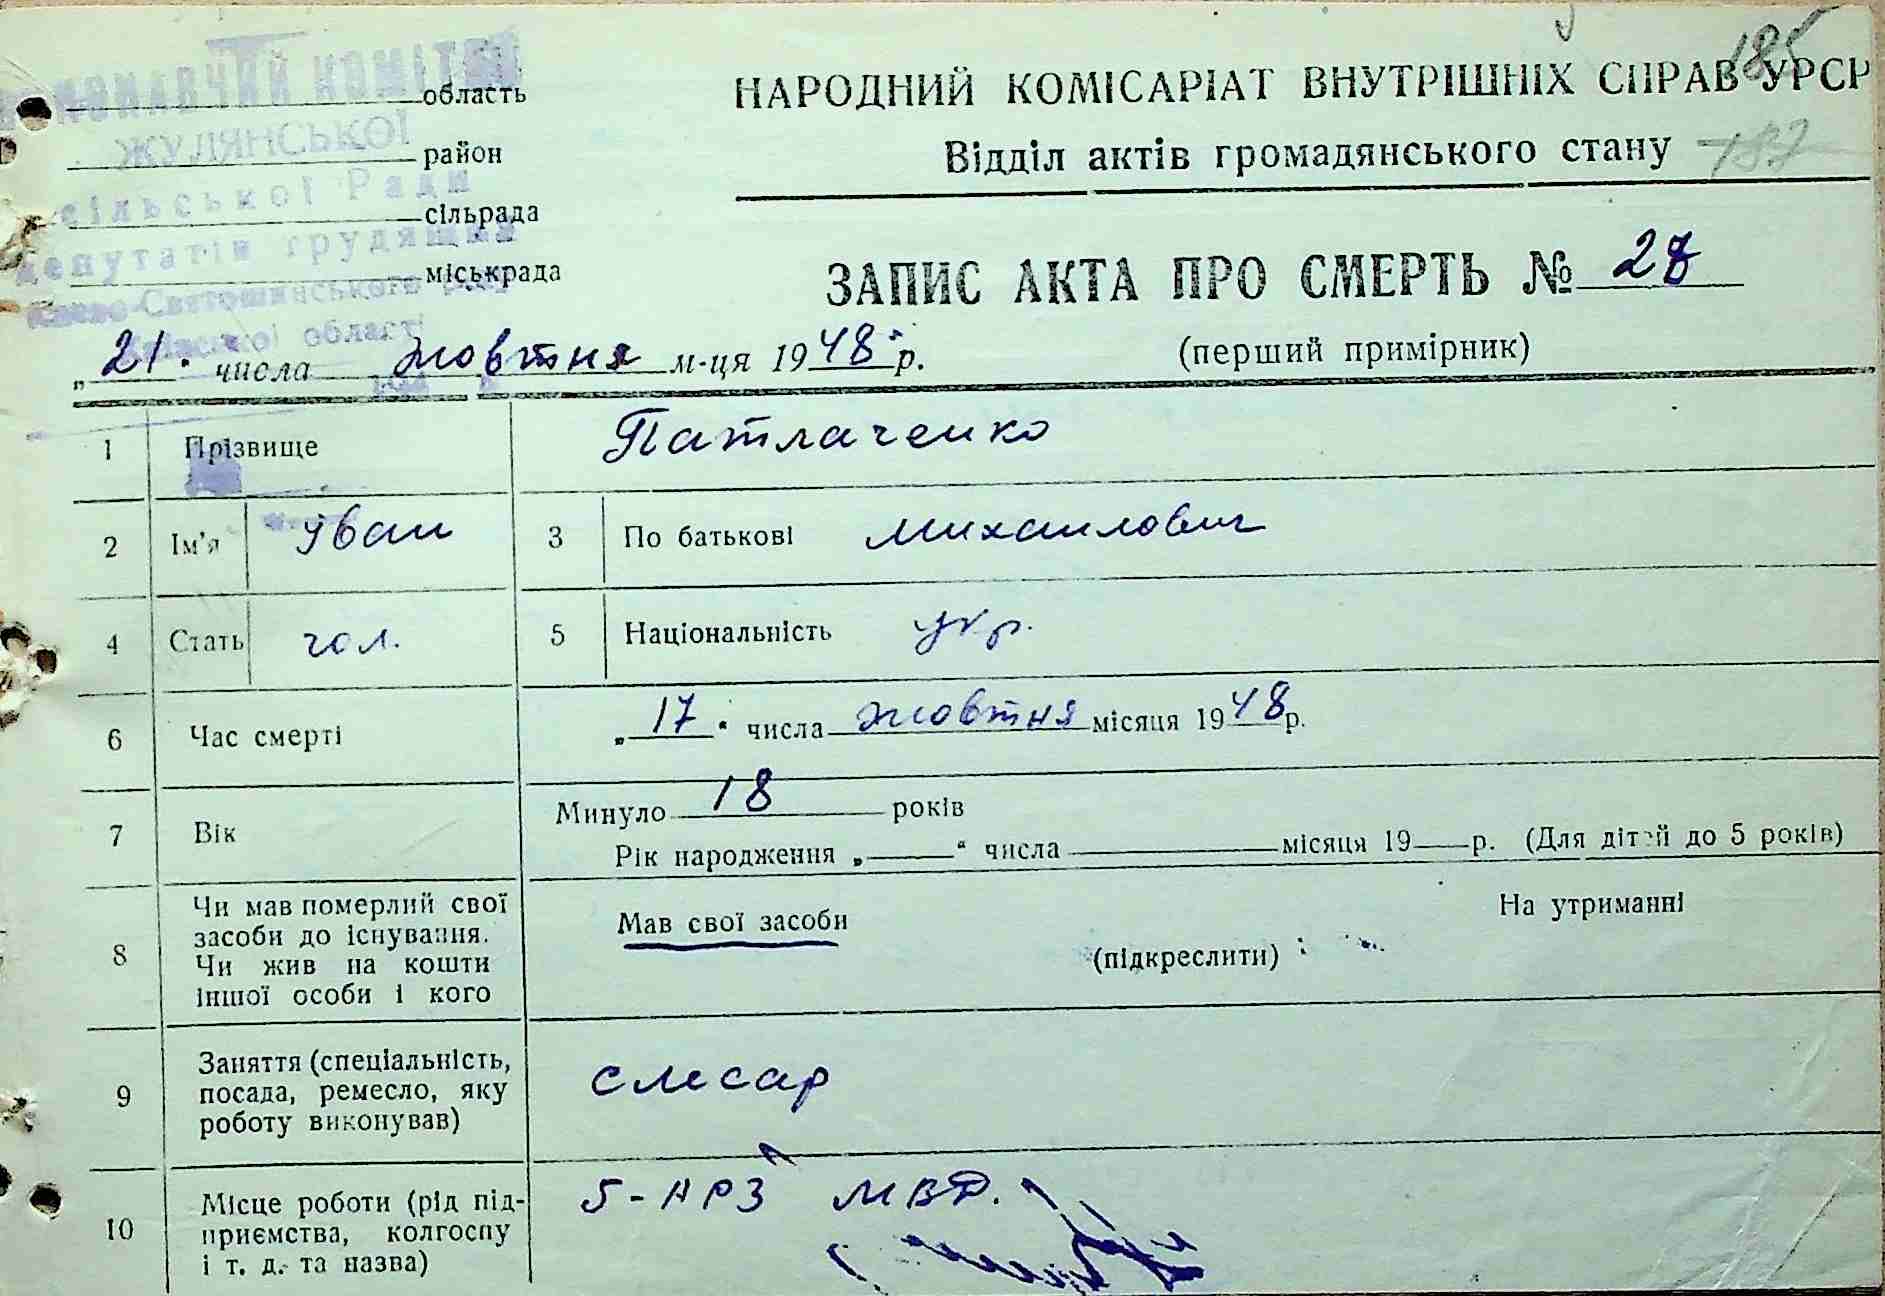 ВИКОНАВЧИЙ КОМІТЕТ
ЖУЛЯНСЬКОЇ
сільської Ради
депутатів трудящих
Києво-Святошинського р-ну
Київської області
область
район
сільрада
міськрада
185
137
НАРОДНИЙ КОМІСАРІАТ ВНУТРІШНІХ СПРАВ УРСР
Відділ актів громадянського стану
ЗАПИС АКТА ПРО СМЕРТЬ № 28
(перший примірник)
„21“ числа жовтня м-ця 1948 р.
1 Прізвище Патлаченко
2 Ім'я Іван 3 По батькові Михаилович
4 Стать чол. 5 Національність укр.
6 Час смерті „17“ числа жовтня місяця 1948 р.
7 Вік Минуло 18 років
Рік народження „ “ числа місяця 19 р. (Для дітей до 5 років)
8 Чи мав померлий свої
засоби до існування.
Чи жив на кошти
іншої особи і кого
Мав свої засоби (підкреслити) На утриманні
9 Заняття (спеціальність,
посада, ремесло, яку
роботу виконував)
слесар
10 Місце роботи (рід під-
приємства, колгоспу
і т. д. та назва)
5-АРЗ МВД.